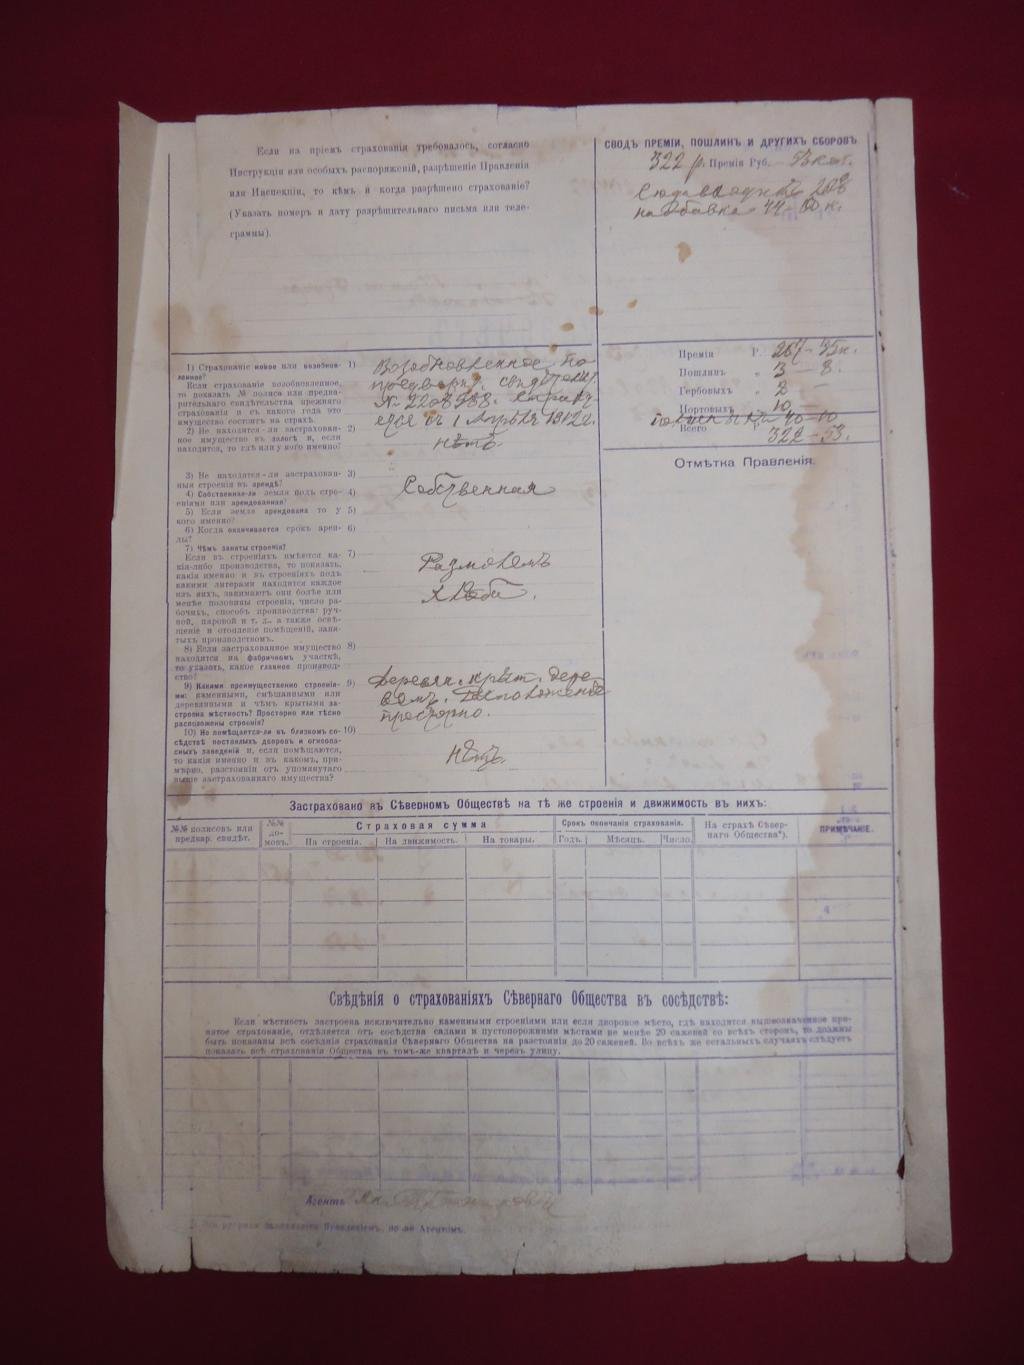 Если на пріемъ страхованія требовалось, согласно
Инструкціи или особыхъ распоряженій, разрѣшеніе Правленія
или Инспекціи, то кѣмъ и когда разрѣшено страхованіе?
(Указать номеръ и дату разрѣшительнаго письма или теле-
граммы).
СВОДЪ ПРЕМІИ, ПОШЛИНЪ И ДРУГИХЪ СБОРОВЪ
322 р. Преміи Руб. 53 коп.
надбавка 44
Преміи Р. 267—35к.
Пошлинъ „ 3—8.
Гербовыхъ „ 2 —
Портовыхъ 10 —
40—10
Всего 322—53.
Отмѣтка Правленія.
1) Страхованіе новое или возобнов-
ленное?
Если страхованіе возобновленное,
то показать № полиса или предва-
рительнаго свидѣтельства прежняго
страхованія и съ какого года это
имущество состоитъ на страхѣ.
1) Возобновленное по
предвор. свидѣтел.
№ 2208983.
съ 1 Апрѣля 1912г.
2) Не находится-ли застрахован-
ное имущество въ залогѣ и, если
находится, то гдѣ или у кого именно?
2) нѣтъ
3) Не находятся-ли застрахован-
ныя строенія въ арендѣ?
3)
4) Собственная-ли земля подъ стро-
еніями или арендованная?
4) Собственная
5) Если земля арендована то у
кого именно?
5)
6) Когда оканчивается срокъ арен-
ды?
6)
7) Чѣмъ заняты строенія?
Если въ строеніяхъ имѣются ка-
кія-либо производства, то показать,
какія именно и въ строеніяхъ подъ
какими литерами находится каждое
изъ нихъ, занимаютъ они болѣе или
менѣе половины строенія, число ра-
бочихъ, способъ производства: руч-
ной, паровой и т. д., а также освѣ-
щеніе и отопленіе помѣщеній, заня-
тыхъ производствомъ.
7) Размоломъ
хлѣба.
8) Если застрахованное имущество
находится на фабричномъ участкѣ,
то указать, какое главное производ-
ство?
8)
9) Какими преимущественно строенія-
ми: каменными, смѣшанными или
деревянными и чѣмъ крытыми за-
строена мѣстность? Просторно или тѣсно
расположены строенія?
9) Деревян. крыт. дере-
вомъ. Расположеніе
просторно.
10) Но помѣщается-ли въ близкомъ со-
сѣдствѣ постоялыхъ дворовъ и огнеопа-
сныхъ заведеній и, если помѣщаются,
то какія именно и въ какомъ, при-
мѣрно, разстояніи отъ упомянутаго
выше застрахованнаго имущества?
10) Нѣтъ.
Застраховано въ Сѣверномъ Обществѣ на тѣ же строенія и движимость въ нихъ:
№№ полисовъ или
предвар. свидѣт.
№№
до-
мовъ.
Страховая сумма
На строенія.
На движимость.
На товары.
Срокъ окончанія страхованія.
Годъ.
Мѣсяцъ.
Число.
На страхѣ Сѣвер-
наго Общества*).
ПРИМѢЧАНІЕ.
Свѣдѣнія о страхованіяхъ Сѣвернаго Общества въ сосѣдствѣ:
Если мѣстность застроена исключительно каменными строеніями или если дворовое мѣсто, гдѣ находится вышеозначенное при-
нятое страхованіе, отдѣляется отъ сосѣдства садами и пустопорожними мѣстами не менѣе 20 саженей со всѣхъ сторонъ, то должны
быть показаны всѣ сосѣднія страхованія Сѣвернаго Общества на разстояніи до 20 саженей. Во всѣхъ же остальныхъ случаяхъ слѣдуетъ
показать всѣ страхованія Общества въ томъ-же кварталѣ и черезъ улицу.
Агентъ
заполняется Правленіемъ, но не Агентомъ.